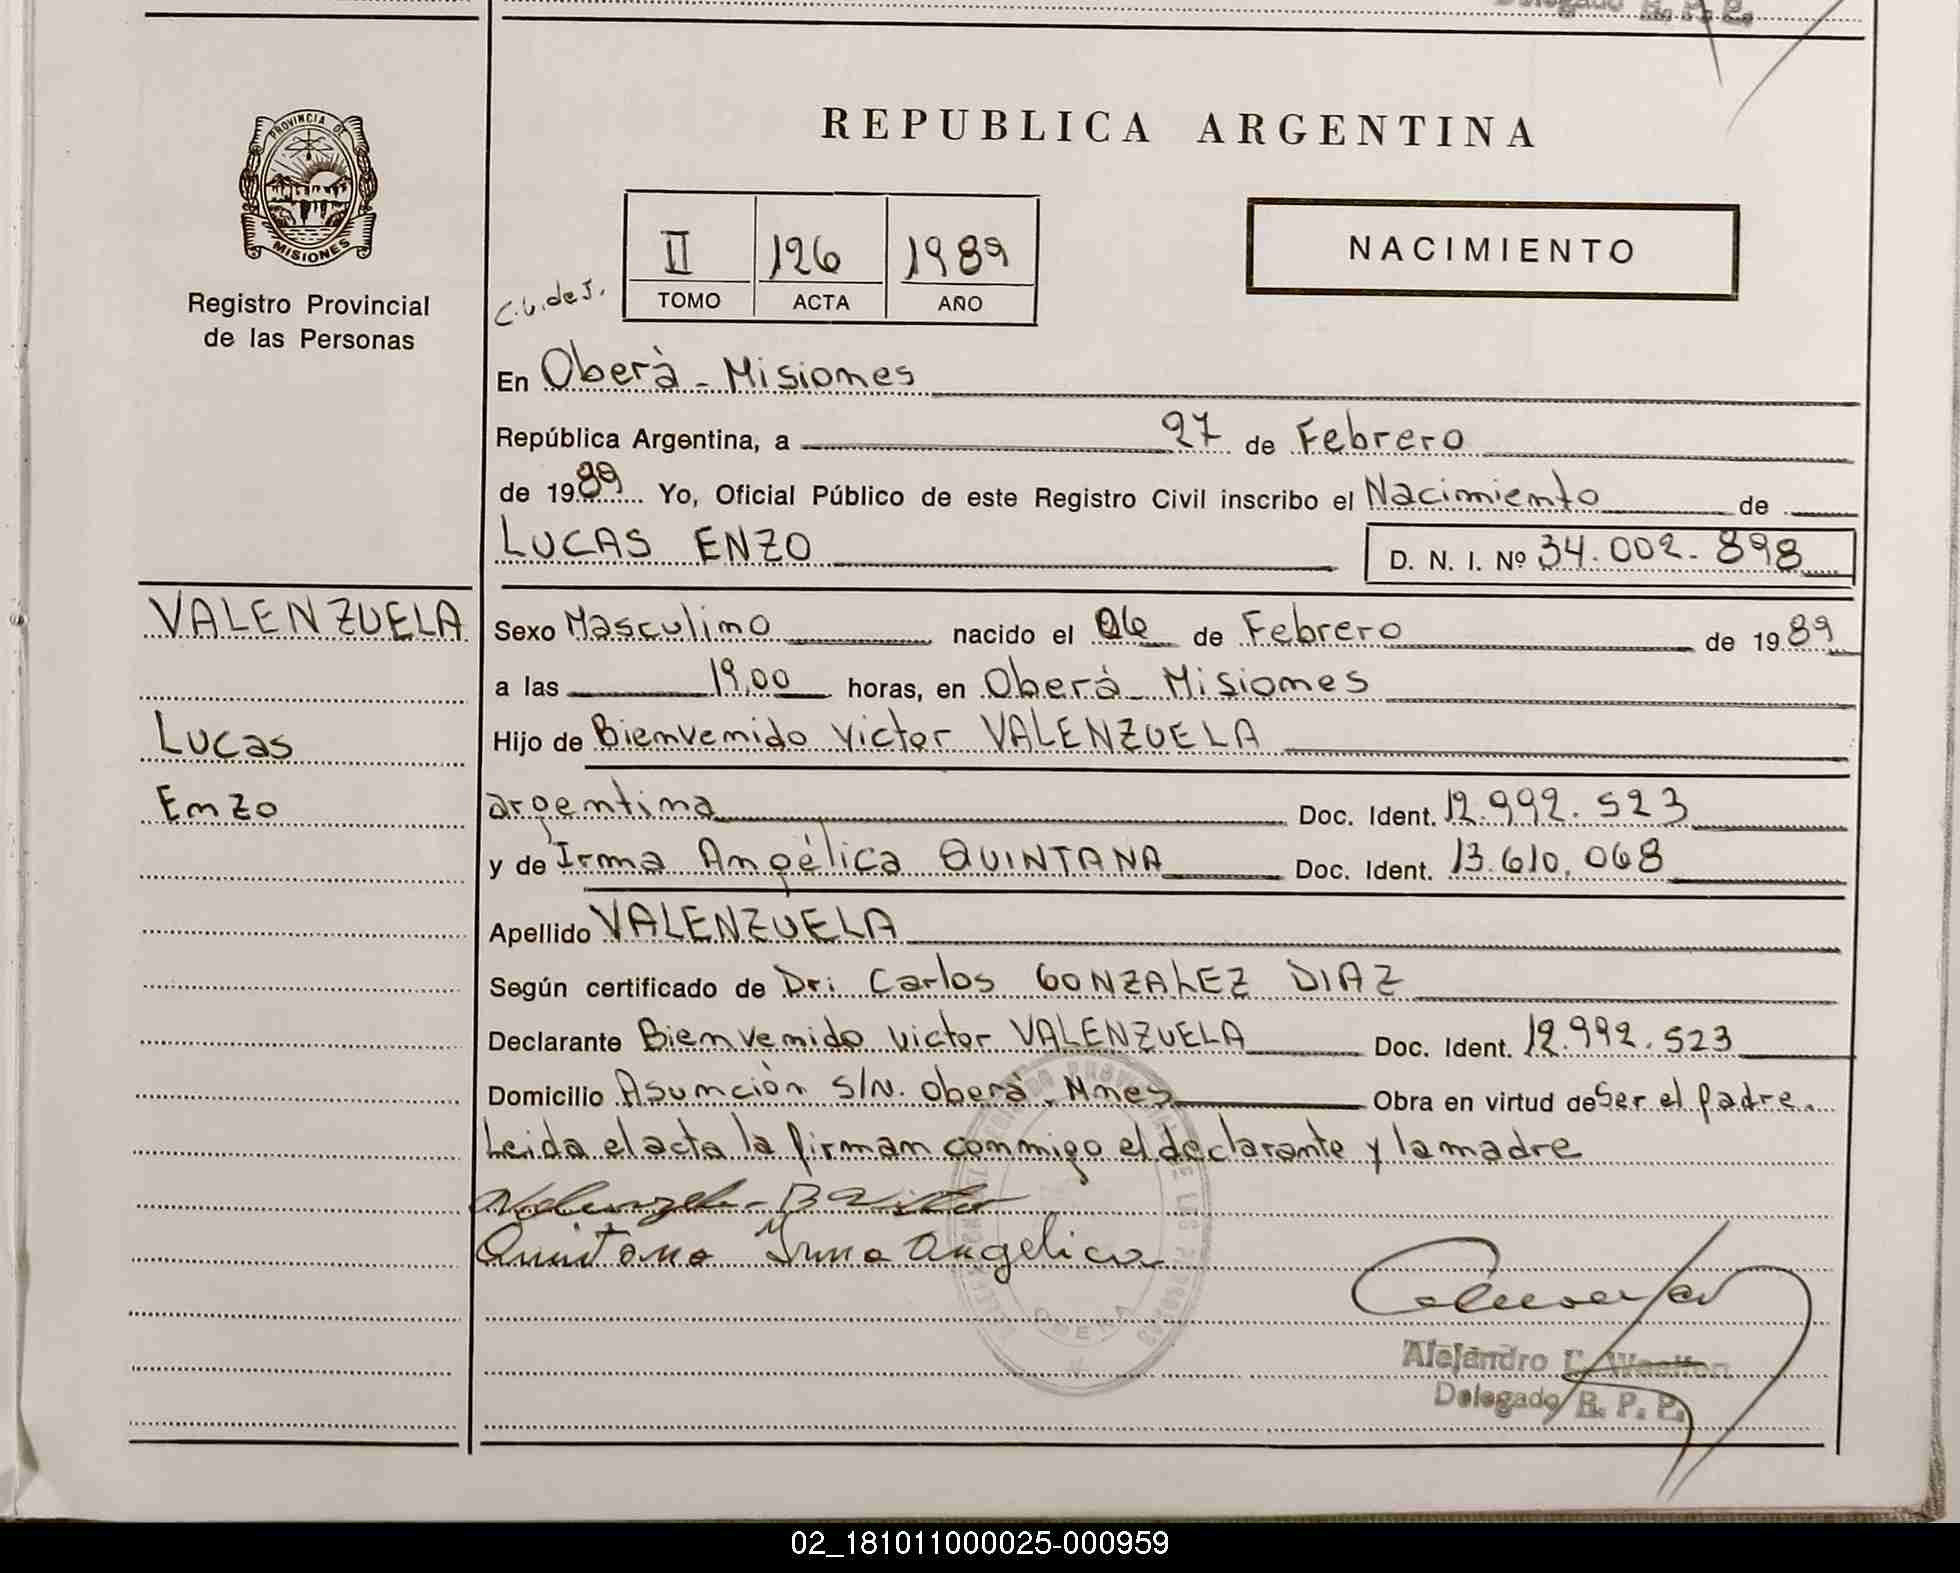 Delegado R. P. P.
PROVINCIA DE
MISIONES
Registro Provincial
de las Personas
REPUBLICA ARGENTINA
II 126 1989
TOMO ACTA AÑO
NACIMIENTO
En Oberà - Misiones
República Argentina, a 27 de Febrero
de 1989 Yo, Oficial Público de este Registro Civil inscribo el Nacimiento de
LUCAS ENZO D. N. I. Nº 34.002.898
VALENZUELA
Lucas
Enzo
Sexo Masculino nacido el 06 de Febrero de 1989
a las 19,00 horas, en Oberá - Misiones
Hijo de Bienvenido Victor VALENZUELA
argentina Doc. Ident. 12.992.523
y de Irma Angélica QUINTANA Doc. Ident. 13.610.068
Apellido VALENZUELA
Según certificado de Dr: Carlos GONZALEZ DIAZ
Declarante Bienvenido Victor VALENZUELA Doc. Ident. 12.992.523
Domicilio Asunción S/N. Oberá. Mnes Obra en virtud de Ser el padre.
Leida el acta la firman conmigo el declarante y la madre
Quintana Irma Angelica
OBERA
Alejandro
Delegado R. P. P.
02_181011000025-000959